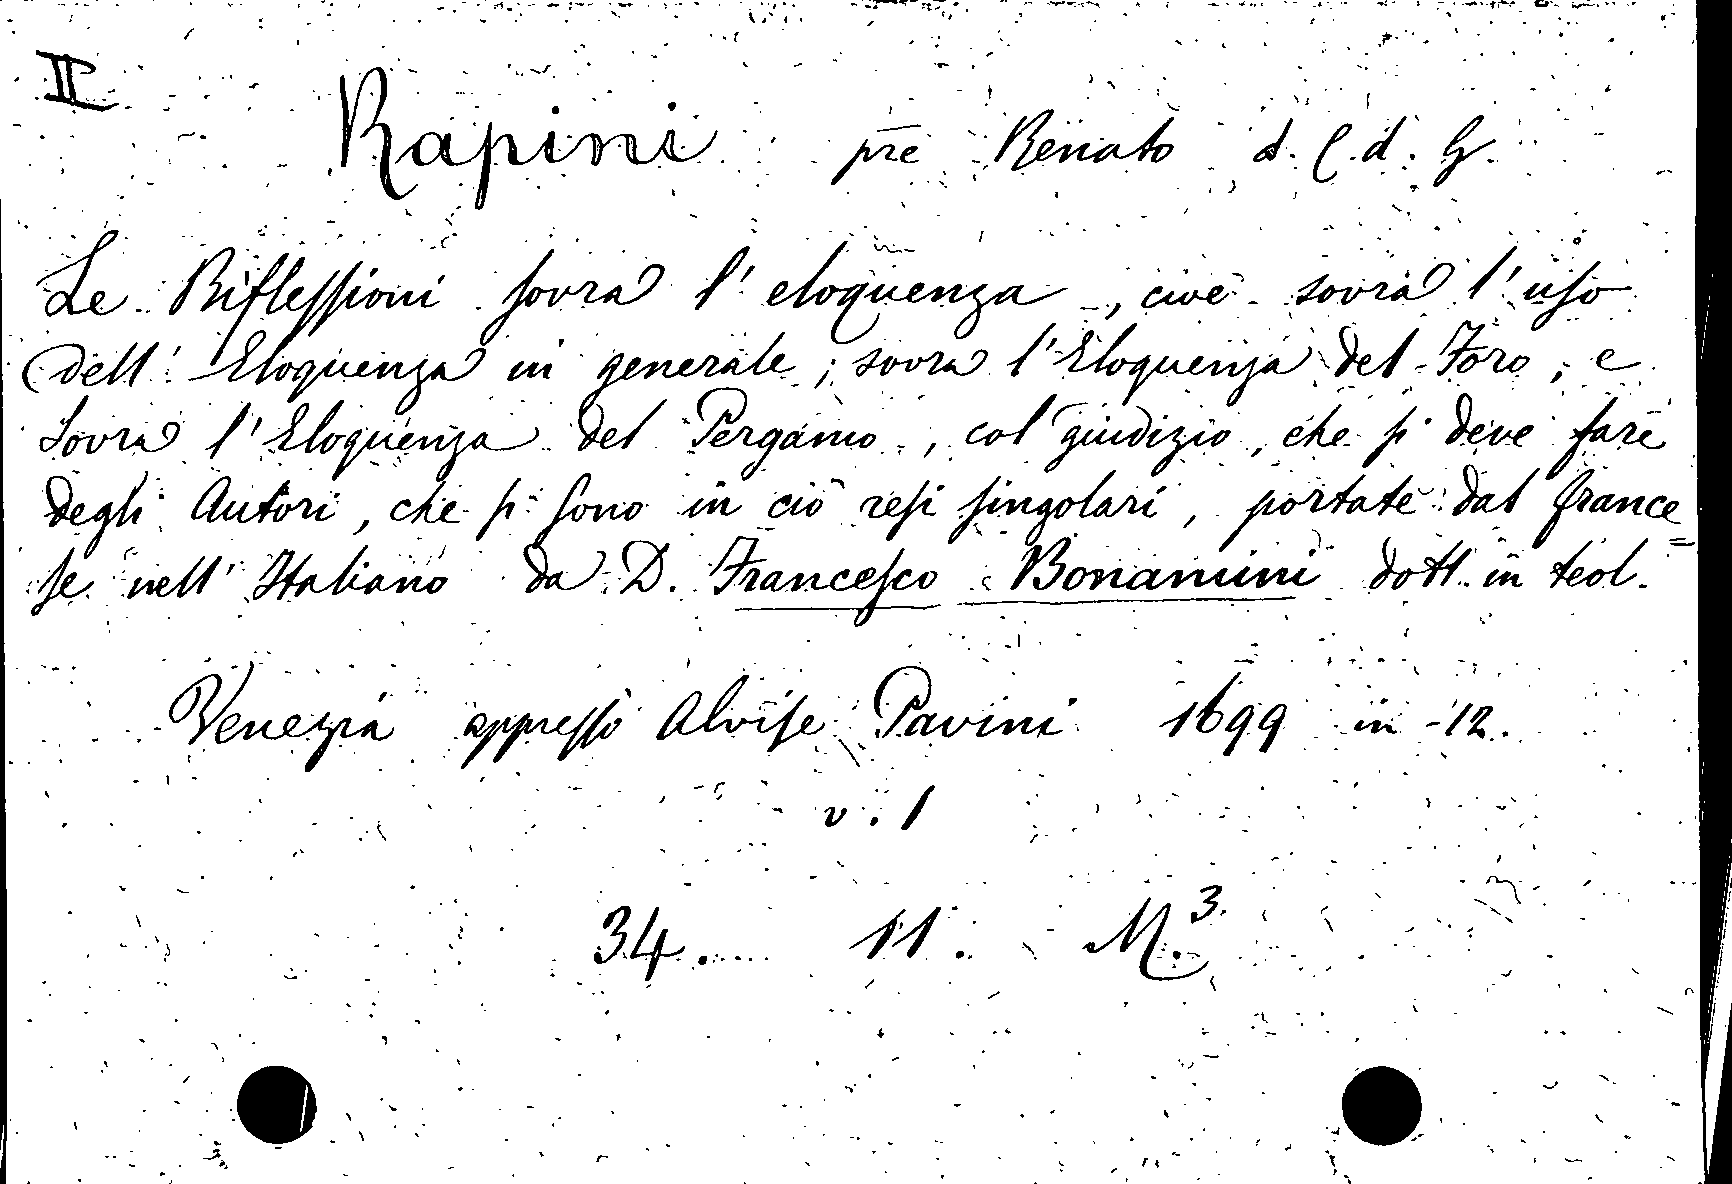 II
Rapini pre Renato d. C. d. G.
Le Riflessioni sovra l'eloquenza, cioè sovra l'uso
dell'Eloquenza in generale; sovra l'Eloquenza del Foro, e
sovra l'Eloquenza del Pergamo, col giudizio, che si deve fare
degli Autori, che si sono in ciò resi singolari, portate dal france=
se nell'Italiano da D. Francesco Bonamini dott. in teol.
Venezia appresso Alvise Pavini 1699 in -12.
v. 1
34. 11. M.3.